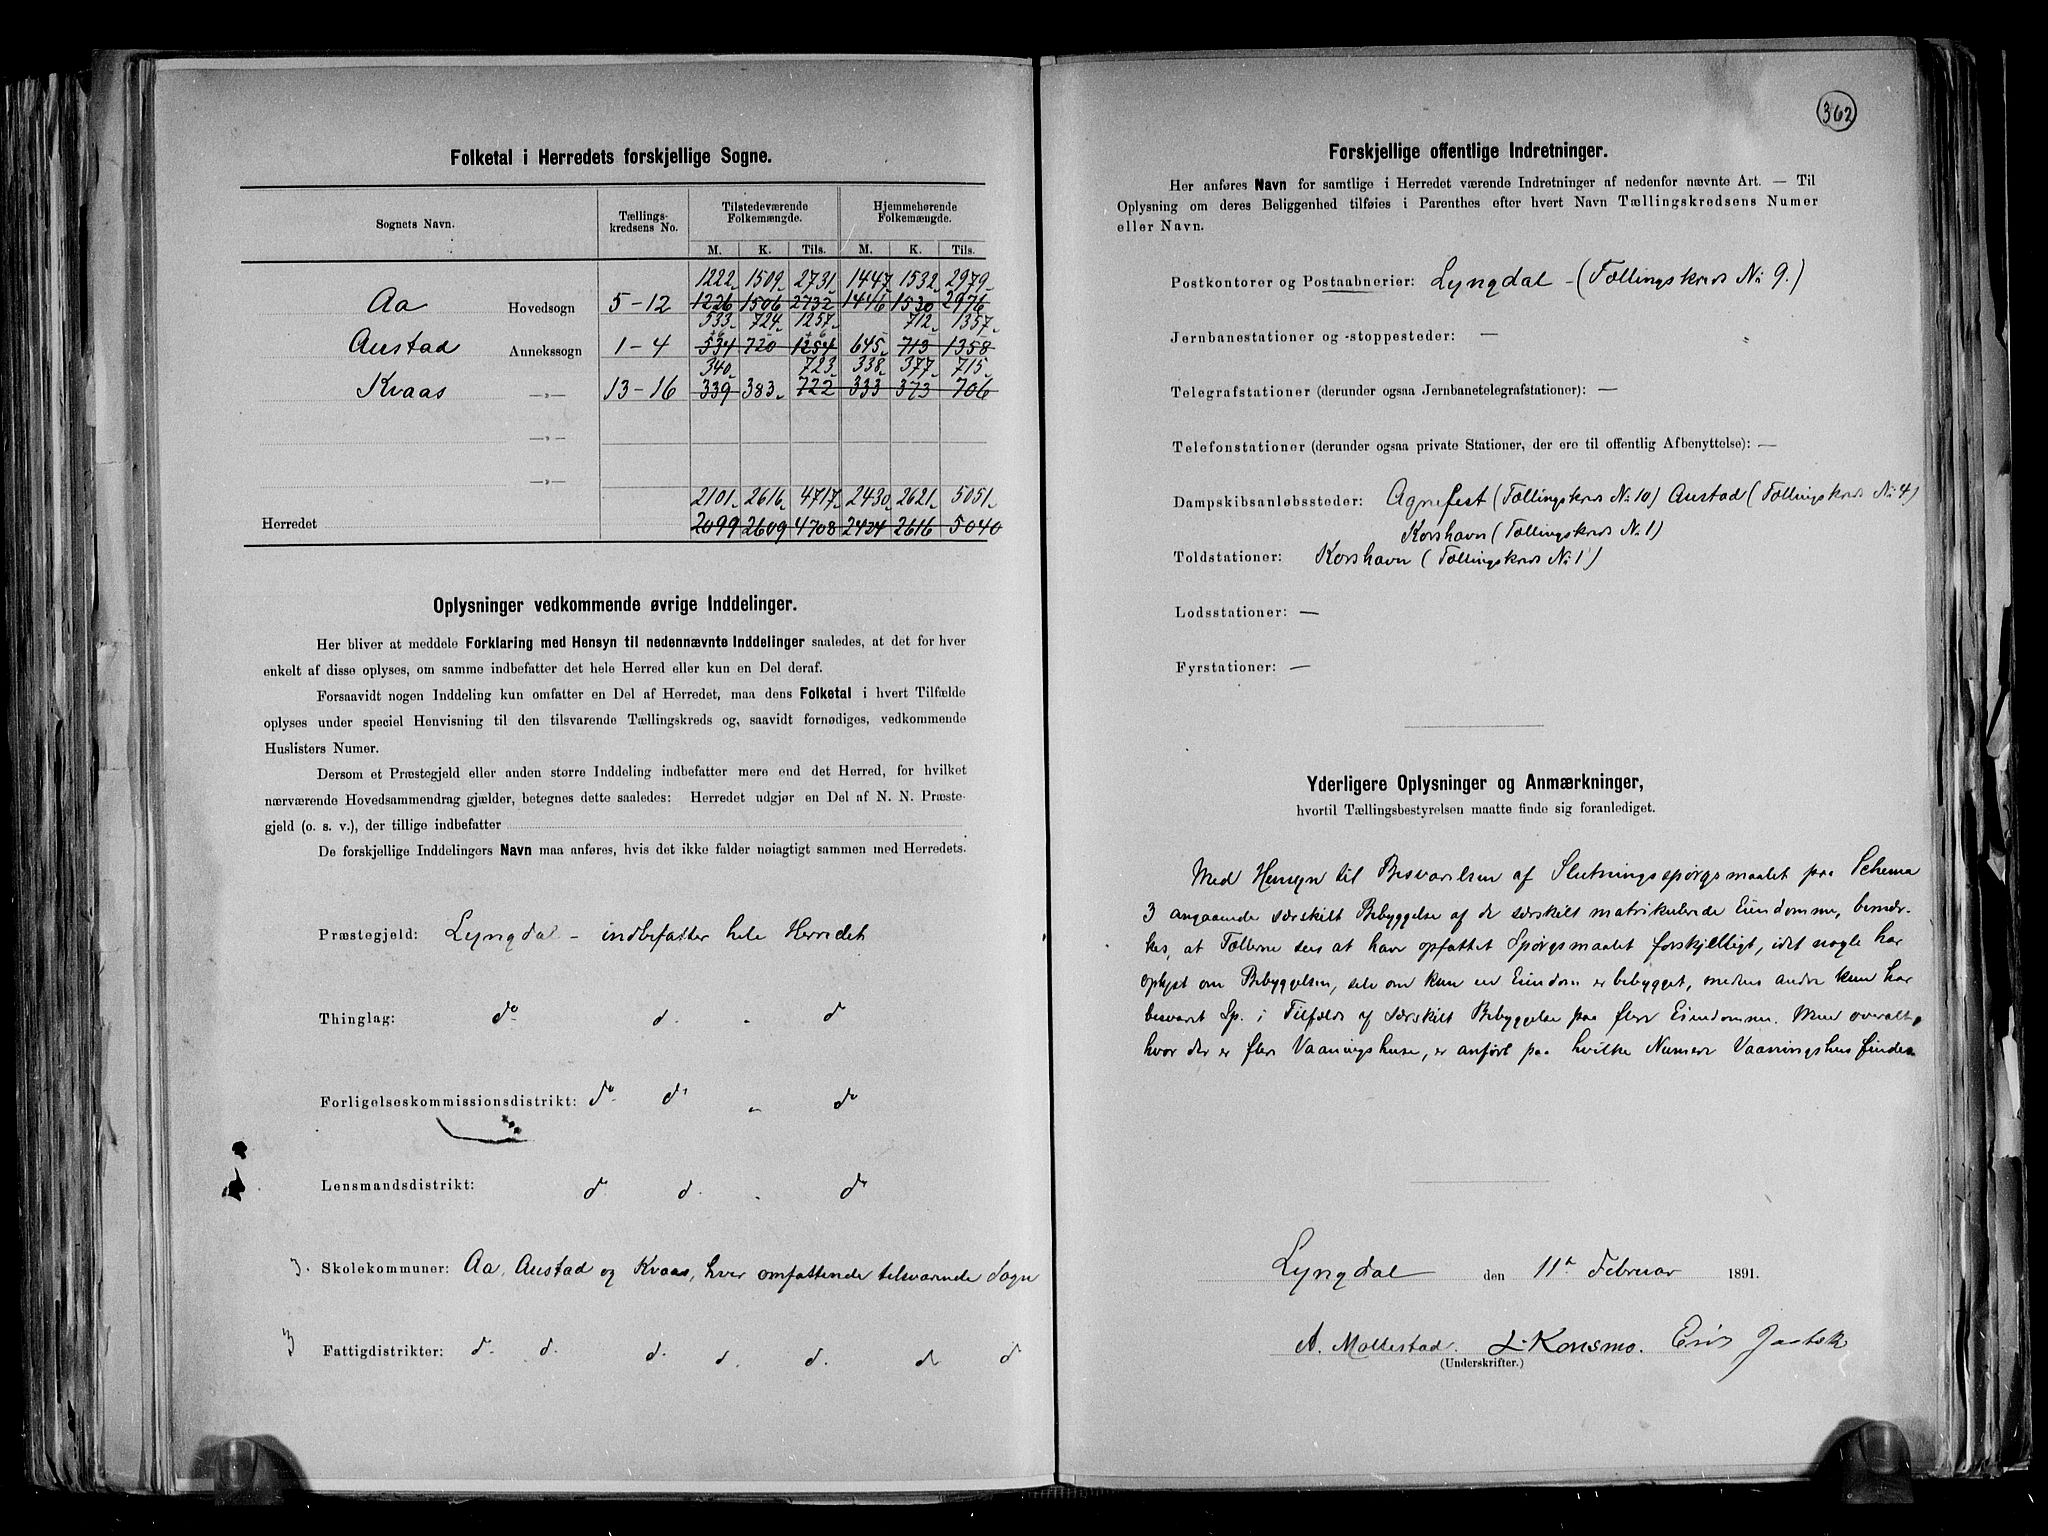 Folketal i Herredets forskjellige Sogne.
Sognets Navn. Tællings- kredsens No. Tilstedeværende Folkemængde. Hjemmehørende Folkemængde.
M. K. Tils. M. K. Tils.
1222 1509 2731 1447 1532 2979
Aa Hovedsogn 5-12 1226 1506 2732 1446 1530 2976
533 724 1257 712 1357
Austad Annekssogn 1-4 534 720 1254 645 713 1358
340 723 338 377 715
Kvaas —„— 13-16 339 383 722 333 373 706
—„—
—„—
2101 2616 4717 2430 2621 5051
Herredet 2099 2609 4708 2424 2616 5040
Oplysninger vedkommende øvrige Inddelinger.
Her bliver at meddele Forklaring med Hensyn til nedennævnte Inddelinger saaledes, at det for hver
enkelt af disse oplyses, om samme indbefatter det hele Herred eller kun en Del deraf.
Forsaavidt nogen Inddeling kun omfatter en Del af Herredet, maa dens Folketal i hvert Tilfælde
oplyses under speciel Henvisning til den tilsvarende Tællingskreds og, saavidt fornødiges, vedkommende
Huslisters Numer.
Dersom et Præstegjeld eller anden større Inddeling indbefatter mere end det Herred, for hvilket
nærværende Hovedsammendrag gjælder, betegnes dette saaledes: Herredet udgjør en Del af N. N. Præste-
gjeld (o. s. v.), der tillige indbefatter
De forskjellige Inddelingers Navn maa anføres, hvis det ikke falder nøiagtigt sammen med Herredets.
Præstegjeld: Lyngdal - indbefatter hele Herredet
Thinglag: do d. „ do
Forligelseskommissionsdistrikt: do do „ do
Lensmandsdistrikt: do d. „ do
3. Skolekommuner: Aa, Austad og Kvaas, hver omfattende tilsvarende Sogn
3 Fattigdistrikter: d. d. d. d. d. d d
362
Forskjellige offentlige Indretninger.
Her anføres Navn for samtlige i Herredet værende Indretninger af nedenfor nævnte Art. — Til
Oplysning om deres Beliggenhed tilføies i Parenthes efter hvert Navn Tællingskredsens Numer
eller Navn.
Postkontorer og Postaabnerier: Lyngdal - (Tællingskreds No 9.)
Jernbanestationer og -stoppesteder: —
Telegrafstationer (derunder ogsaa Jernbanetelegrafstationer): —
Telefonstationer (derunder ogsaa private Stationer, der ere til offentlig Afbenyttelse): —
Dampskibsanløbssteder: Agnefest (Tællingskreds No 10) Austad (Tællingskreds No 4)
Korshavn (Tællingskreds No 1)
Toldstationer: Korshavn (Tællingskreds No 1)
Lodsstationer: —
Fyrstationer: —
Yderligere Oplysninger og Anmærkninger,
hvortil Tællingsbestyrelsen maatte finde sig foranlediget.
Med Hensyn til Besvarelsen af Slutningsspørgsmaalet paa Schema
3 angaaende særskilt Bebyggelse af de særskilt matrikulerede Eiendomme, bemær-
kes, at Tællerne sees at have opfattet Spørgsmaalet forskjelligt, idet nogle har
oplyst om Bebyggelsen, selv om kun en Eiendom er bebygget, medens andre kun har
besvaret Sp. i Tilfælde af særskilt Bebyggelse paa flere Eiendomme. Men overalt,
hvor der er flere Vaaningshuse, er anført paa hvilke Numere Vaaningshus findes
Lyngdal den 11te Februar 1891.
A. Mollestad. L. Konsmo. Eris
(Underskrifter.)